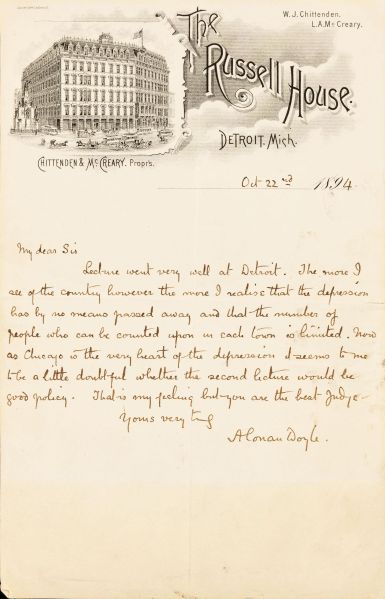 W. J. Chittenden.
L. A. Mc Creary.
The
Russell House.
Detroit, Mich.
Chittenden & Mc Creary. Propr's.
Oct 22nd 1894.
My dear Sir
Lecture went very well at Detroit. The more I
see of the country however the more I realise that the depression
has by no means passed away and that the number of
people who can be counted upon in each town is limited. Now
as Chicago is the very heart of the depression it seems to me
to be a little doubtful whether the second lecture would be
good policy. That is my feeling but you are the best judge -
Yours very truly
A Conan Doyle.